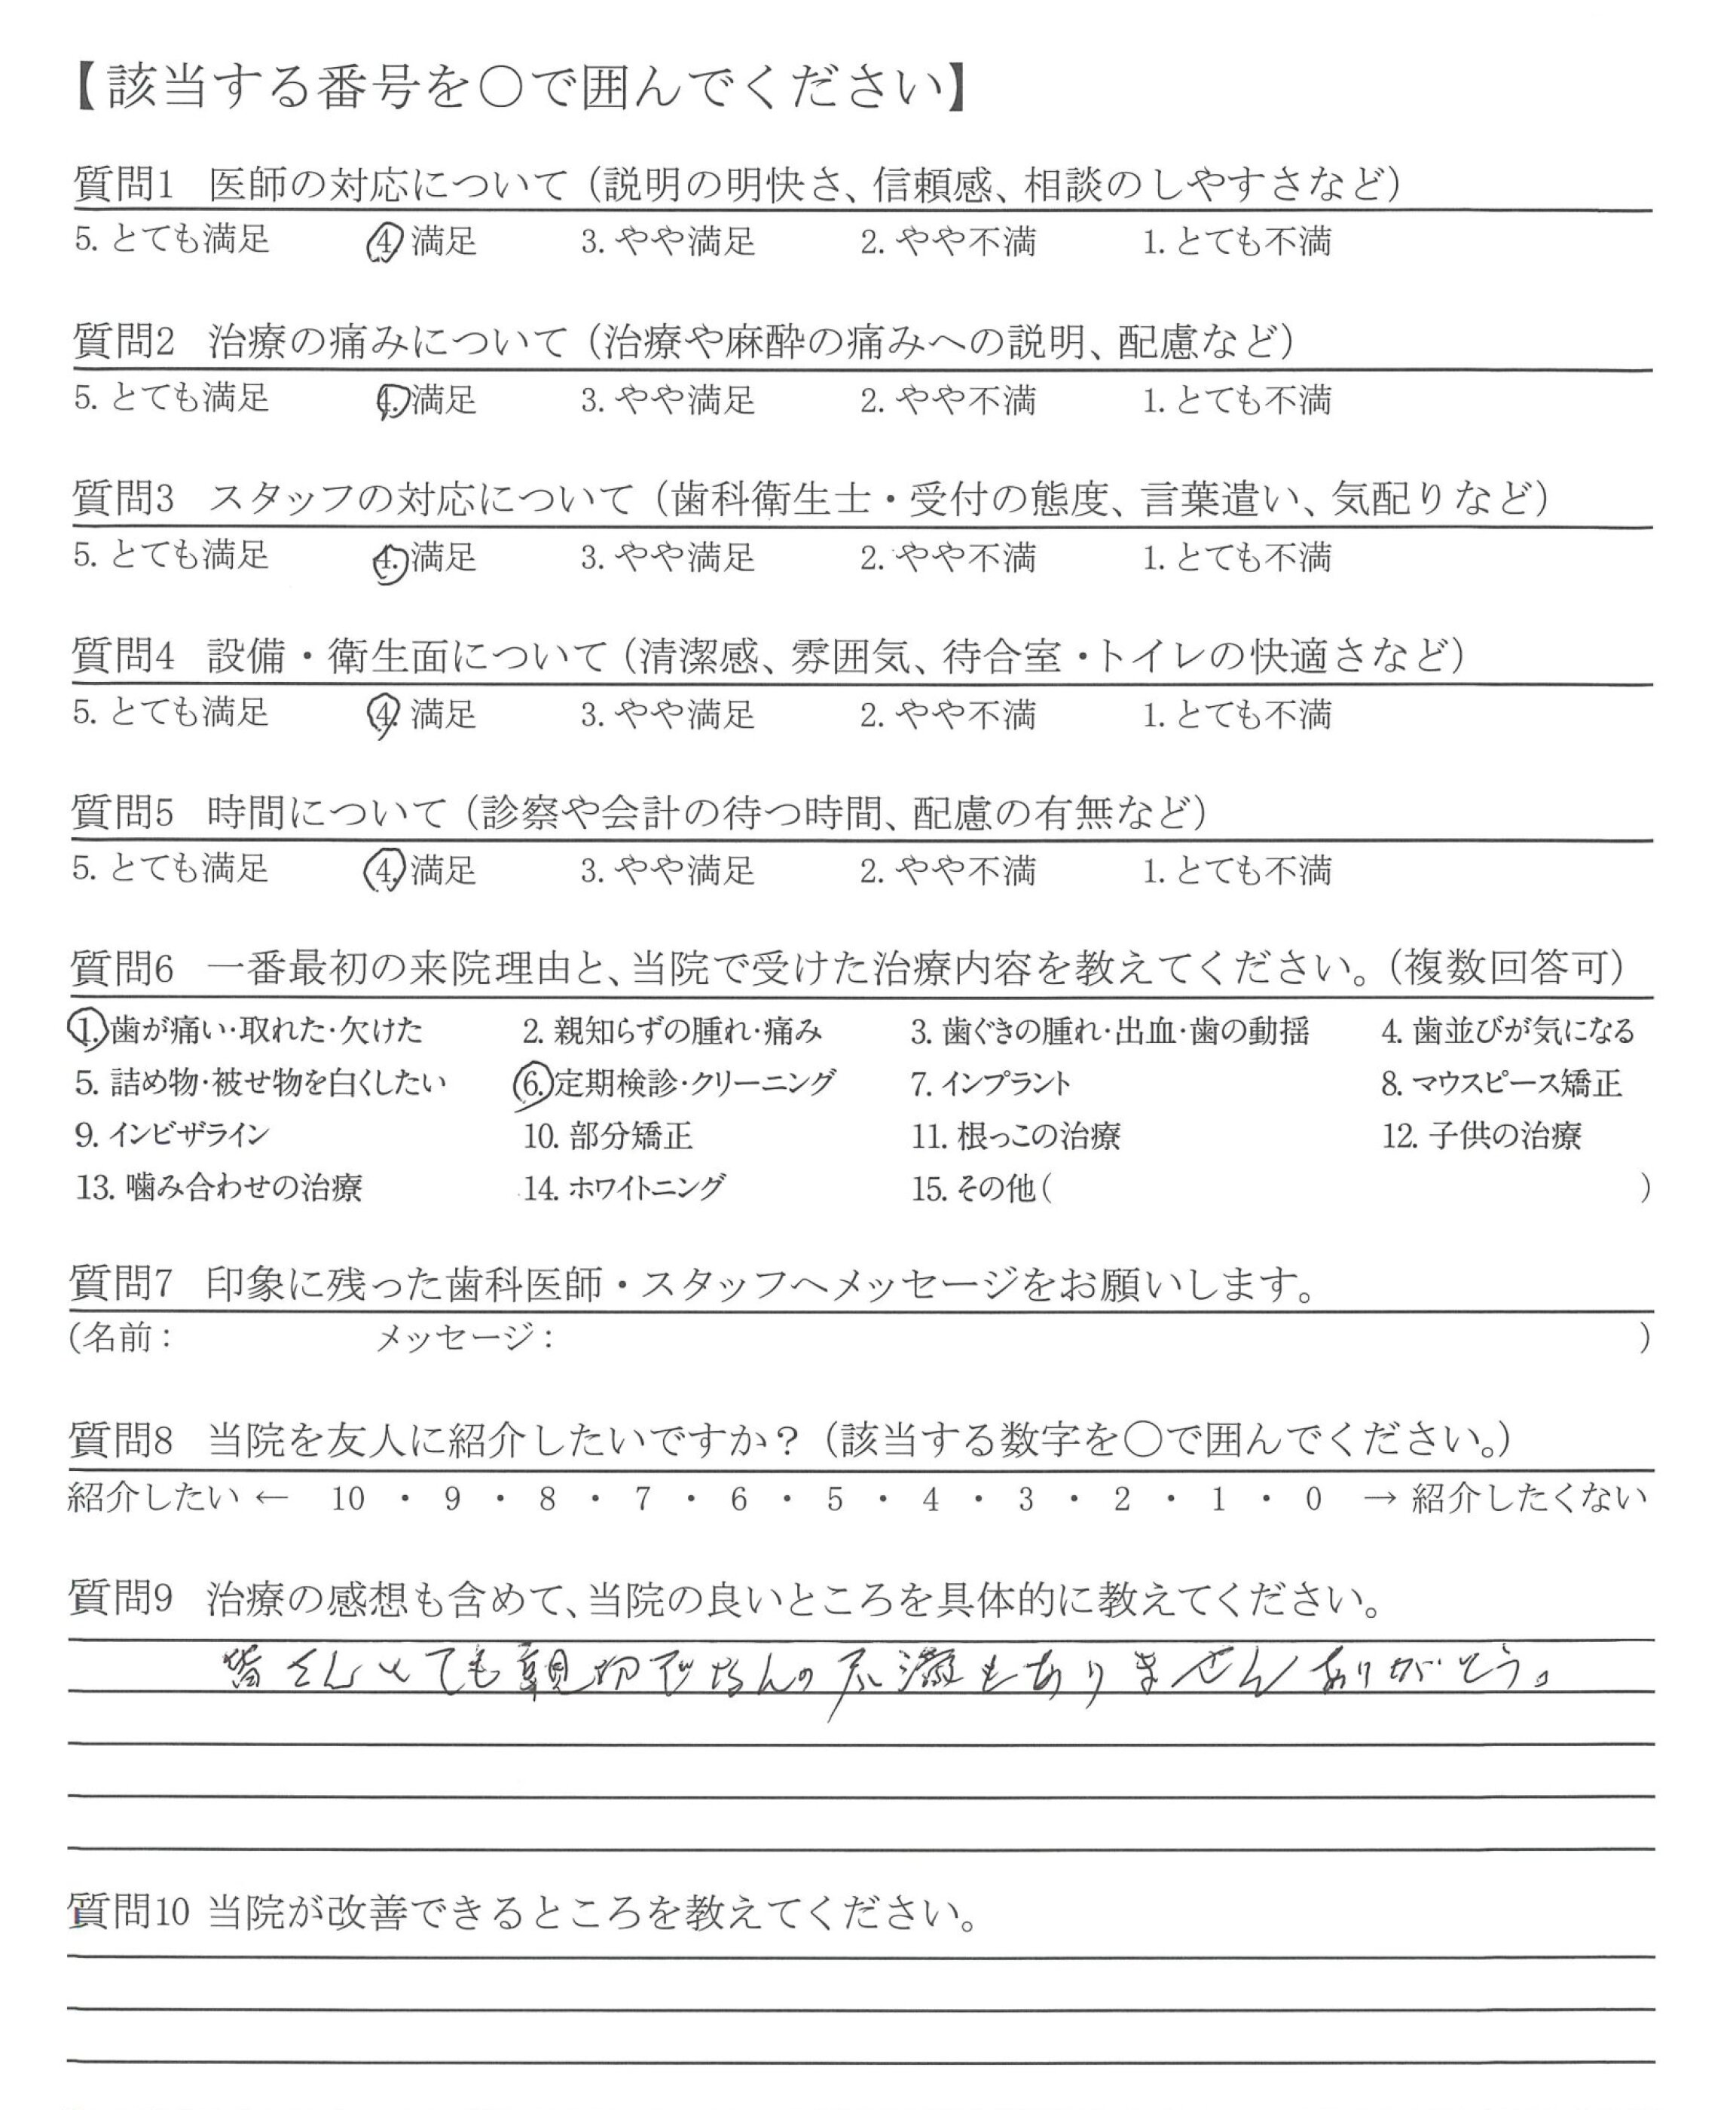 【該当する番号を〇で囲んでください】
質問1 医師の対応について（説明の明快さ、信頼感、相談のしやすさなど）
5. とても満足 4. 満足 3. やや満足 2. やや不満 1. とても不満
質問2 治療の痛みについて（治療や麻酔の痛みへの説明、配慮など）
5. とても満足 4. 満足 3. やや満足 2. やや不満 1. とても不満
質問3 スタッフの対応について（歯科衛生士・受付の態度、言葉遣い、気配りなど）
5. とても満足 4. 満足 3. やや満足 2. やや不満 1. とても不満
質問4 設備・衛生面について（清潔感、雰囲気、待合室・トイレの快適さなど）
5. とても満足 4. 満足 3. やや満足 2. やや不満 1. とても不満
質問5 時間について（診察や会計の待つ時間、配慮の有無など）
5. とても満足 4. 満足 3. やや満足 2. やや不満 1. とても不満
質問6 一番最初の来院理由と、当院で受けた治療内容を教えてください。（複数回答可）
1. 歯が痛い・取れた・欠けた 2. 親知らずの腫れ・痛み 3. 歯ぐきの腫れ・出血・歯の動揺 4. 歯並びが気になる
5. 詰め物・被せ物を白くしたい 6. 定期検診・クリーニング 7. インプラント 8. マウスピース矯正
9. インビザライン 10. 部分矯正 11. 根っこの治療 12. 子供の治療
13. 噛み合わせの治療 14. ホワイトニング 15. その他（ ）
質問7 印象に残った歯科医師・スタッフへメッセージをお願いします。
（名前： メッセージ： ）
質問8 当院を友人に紹介したいですか？（該当する数字を〇で囲んでください。）
紹介したい ← 10 ・ 9 ・ 8 ・ 7 ・ 6 ・ 5 ・ 4 ・ 3 ・ 2 ・ 1 ・ 0 → 紹介したくない
質問9 治療の感想も含めて、当院の良いところを具体的に教えてください。
皆さんとても親切でなんの不満もありませんありがとう。
質問10 当院が改善できるところを教えてください。